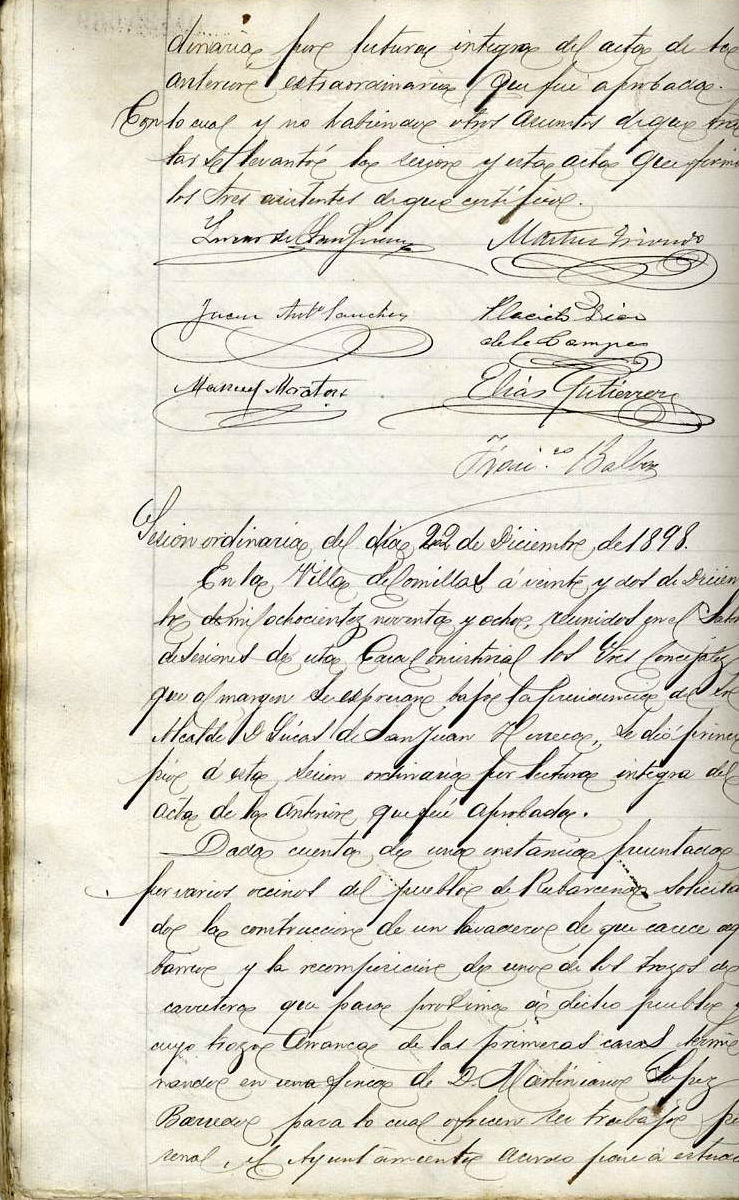 dinaria, por lectura integra del acta de la
anterior extraordinaria, que fué aprobada.
Con lo cual y no habiendo otros asuntos de que tra
tar se levantó la sesion y esta acta que firman
los tres asistentes de que certifico.
Lucas de San Juan
Juan Antº Sanchez
Placido Diaz
de la Campa
Manuel Moraton
Elias Gutierrez
Franc.co Balboa
Sesion ordinaria del dia 22 de Diciembre de 1898.
En la Villa de Comillas á veinte y dos de Diciem
bre de mil ochocientos noventa y ocho, reunidos en el Salon
de sesiones de esta Casa Consistorial los tres Concejales
que al margen se espresan bajo la presidencia del Sr
Alcalde D Lúcas de San Juan Herrera, se dió princi
pio á esta sesion ordinaria por lectura integra del
acta de la anterior que fué aprobada.
Dada cuenta de una instancia presentada
por varios vecinos del pueblo de Rubarcena solicitan
do la construccion de un lavadero de que carece aq
barrio y la recomposicion de uno de los trozos de
carretera que pasa proxima á dicho pueblo y
cuyo trozo arranca de las primeras casas termi
nando en una finca de D Martiniano Lopez
Barredo para lo cual ofrecen su trabajo per
sonal, el Ayuntamiento acordó pase á estudio